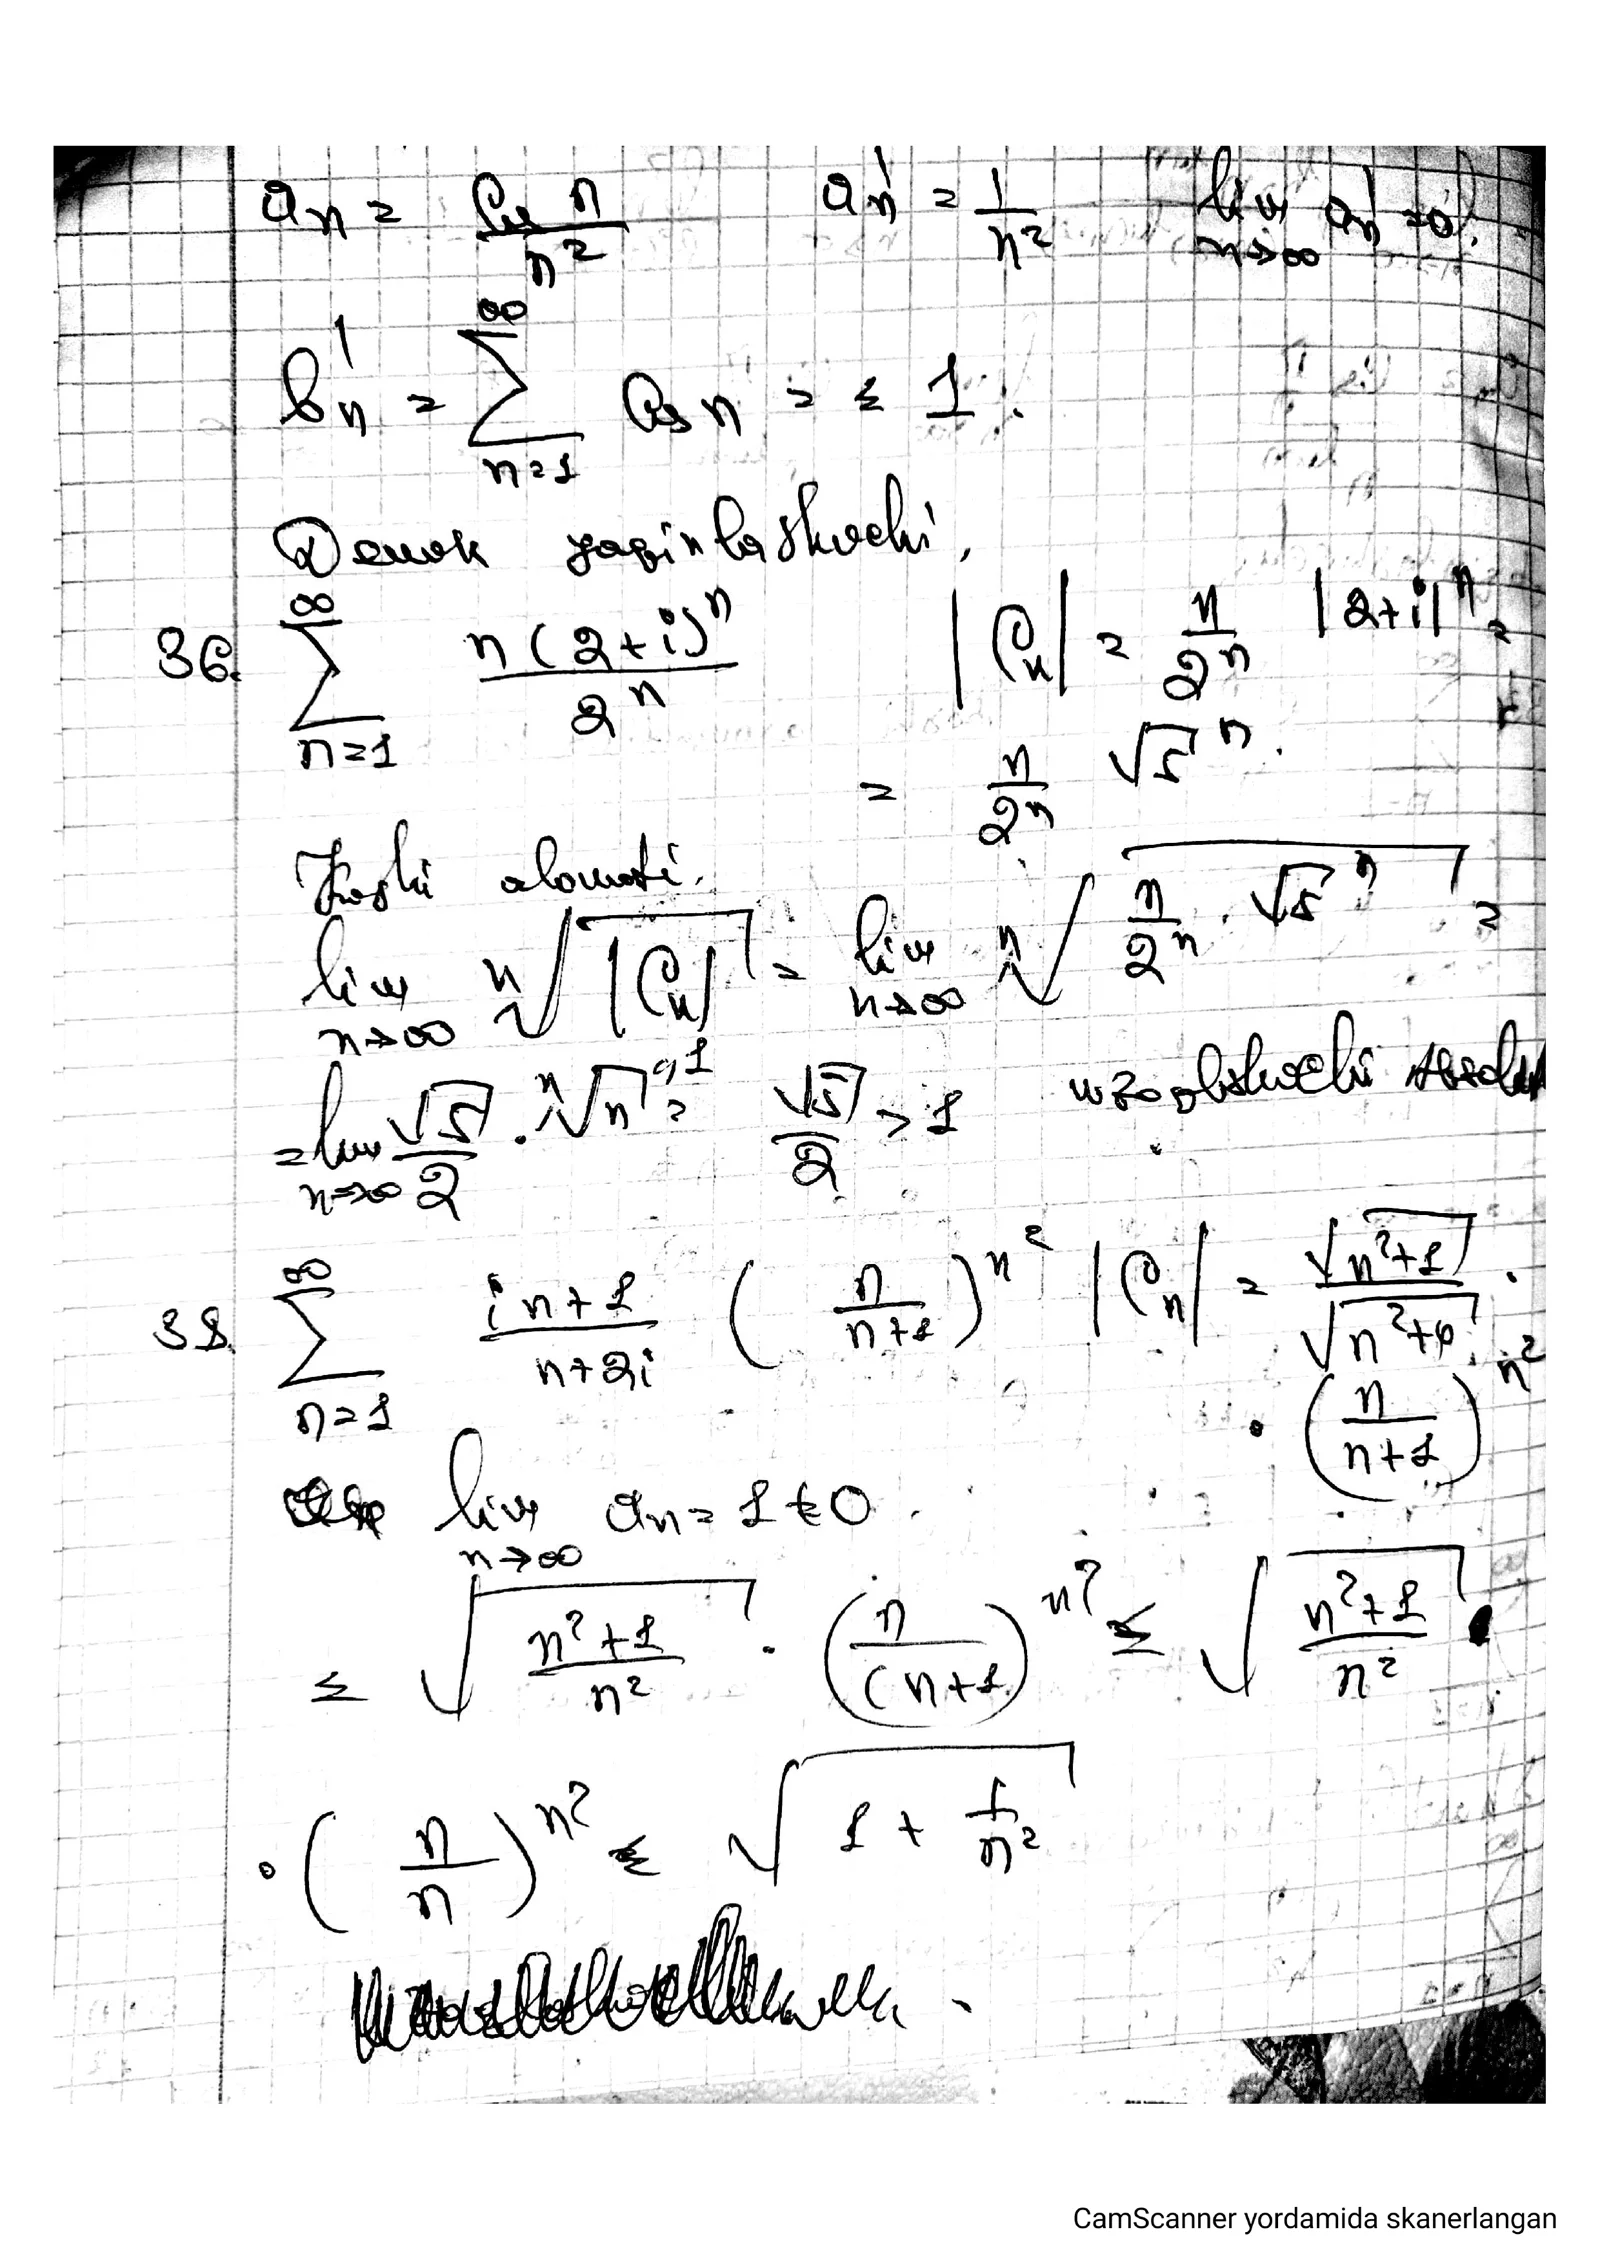 aₙ = cos n / n²   aₙ' = 1/n²   lim n→∞ aₙ' = 0.
bₙ' = ∑ n=1 ∞ cos n = ≤ 1.
Demak yaqinlashuvchi.
36. ∑ n=1 ∞ n(2+i)ⁿ / 2ⁿ   |Cₙ| = n/2ⁿ |2+i|ⁿ =
= n/2ⁿ √5ⁿ.
Koshi alomati.
lim n→∞ ⁿ√|Cₙ| = lim n→∞ ⁿ√(n/2ⁿ · √5ⁿ) =
= lim n→∞ √5/2 · ⁿ√n →1 = √5/2 > 1   uzoqlashuvchi
38. ∑ n=1 ∞ (in+1)/(n+2i) (n/(n+1))^n²   |Cₙ| = √(n²+1)/√(n²+4) ·
· (n/(n+1))^n²
lim n→∞ aₙ = 1 ≠ 0.
≤ √((n²+1)/n²) · (n/(n+1))^n² ≤ √((n²+1)/n²) ·
· (n/n)^n² ≤ √(1 + 1/n²)
CamScanner yordamida skanerlangan